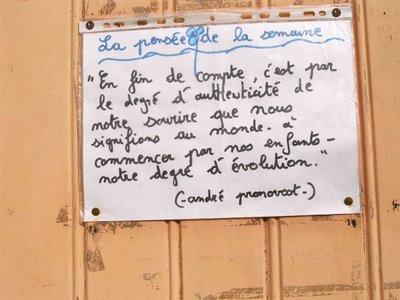 La pensée de la semaine
"En fin de compte, c'est par
le degré d'authenticité de
notre sourire que nous
signifions au monde - à
commencer par nos enfants -
notre degré d'évolution."
(-andré pronovost-)